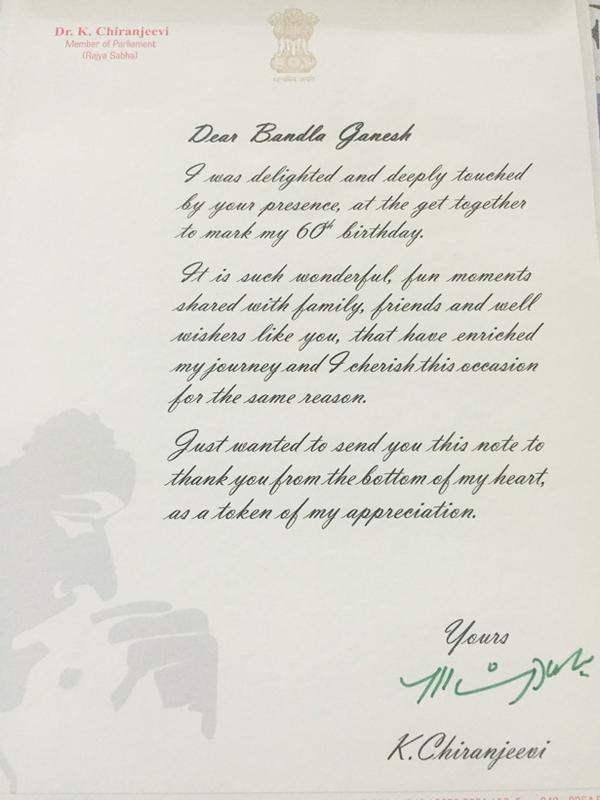 Dr. K. Chiranjeevi
Member of Parliament
(Rajya Sabha)
Dear Bandla Ganesh
I was delighted and deeply touched
by your presence, at the get together
to mark my 60th birthday.
It is such wonderful, fun moments
shared with family, friends and well
wishers like you, that have enriched
my journey and I cherish this occasion
for the same reason.
Just wanted to send you this note to
thank you from the bottom of my heart,
as a token of my appreciation.
Yours
K.Chiranjeevi